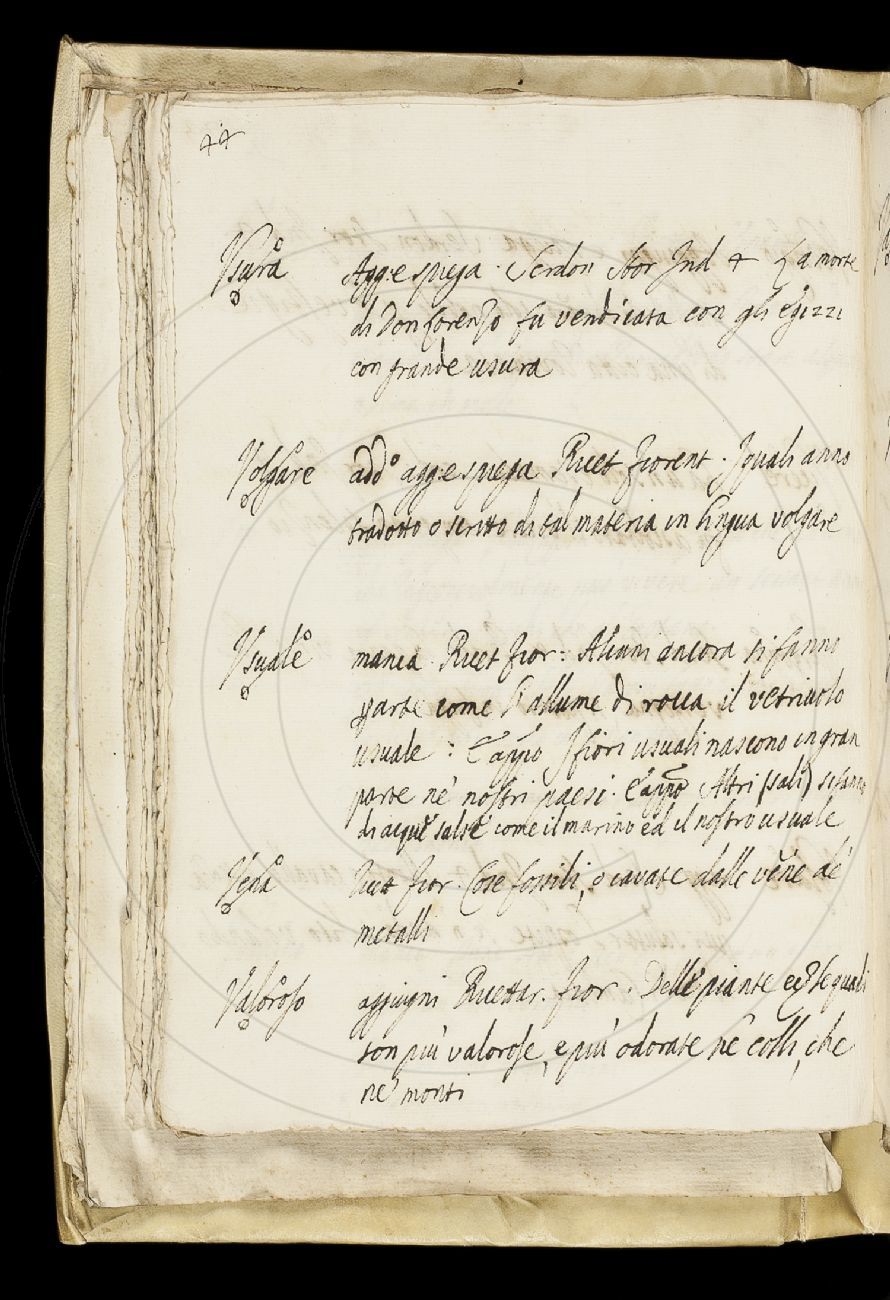 44
Vsura Agg: e spiega. Serdon Stor Ind 4 La morte
di Don Lorenzo fu vendicata con gli Egizzi
con grande usura
Volgare add.º agg: e spiega Ricet fiorent. I quali anno
tradotto o scritto di tal materia in lingua volgare
Vsuale manca. Ricet fior: Alcuni ancora si fanno
parte come l'allume di rocca il vetriuolo
usuale: E appo I fiori usuali nascono in gran
parte ne' nostri paesi. E appo Altri (sali) si fanno
di acque salse come il marino ed il nostro usuale
Vena Ricet fior. Cose fossili, o cavate dalle vene de'
metalli
Valoroso aggiugni Ricettar. fior. Delle piante le quali
son più valorose, e più odorate ne' colli, che
ne' monti